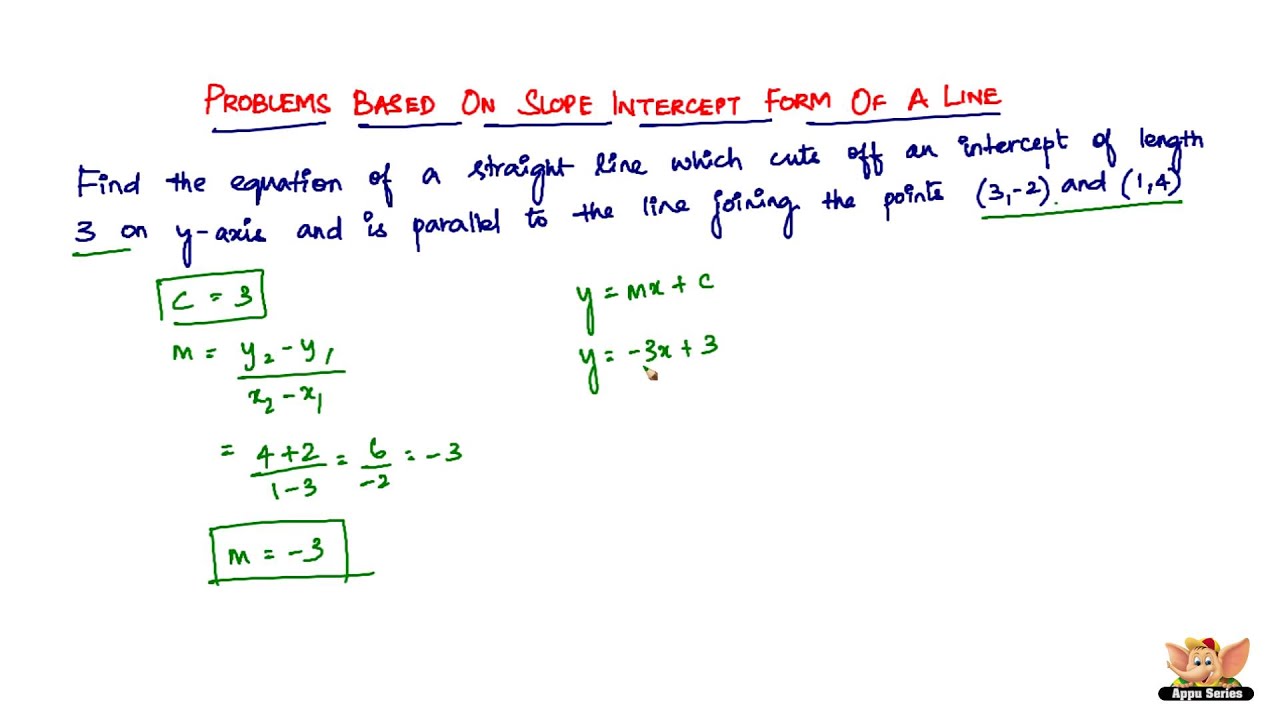 PROBLEMS BASED ON SLOPE INTERCEPT FORM OF A LINE
Find the equation of a straight line which cuts off an intercept of length
3 on y-axis and is parallel to the line joining the points (3,-2) and (1,4)
C = 3
m = y₂ - y₁ / x₂ - x₁
= 4+2 / 1-3 = 6 / -2 = -3
m = -3
y = mx + c
y = -3x + 3
Appu Series